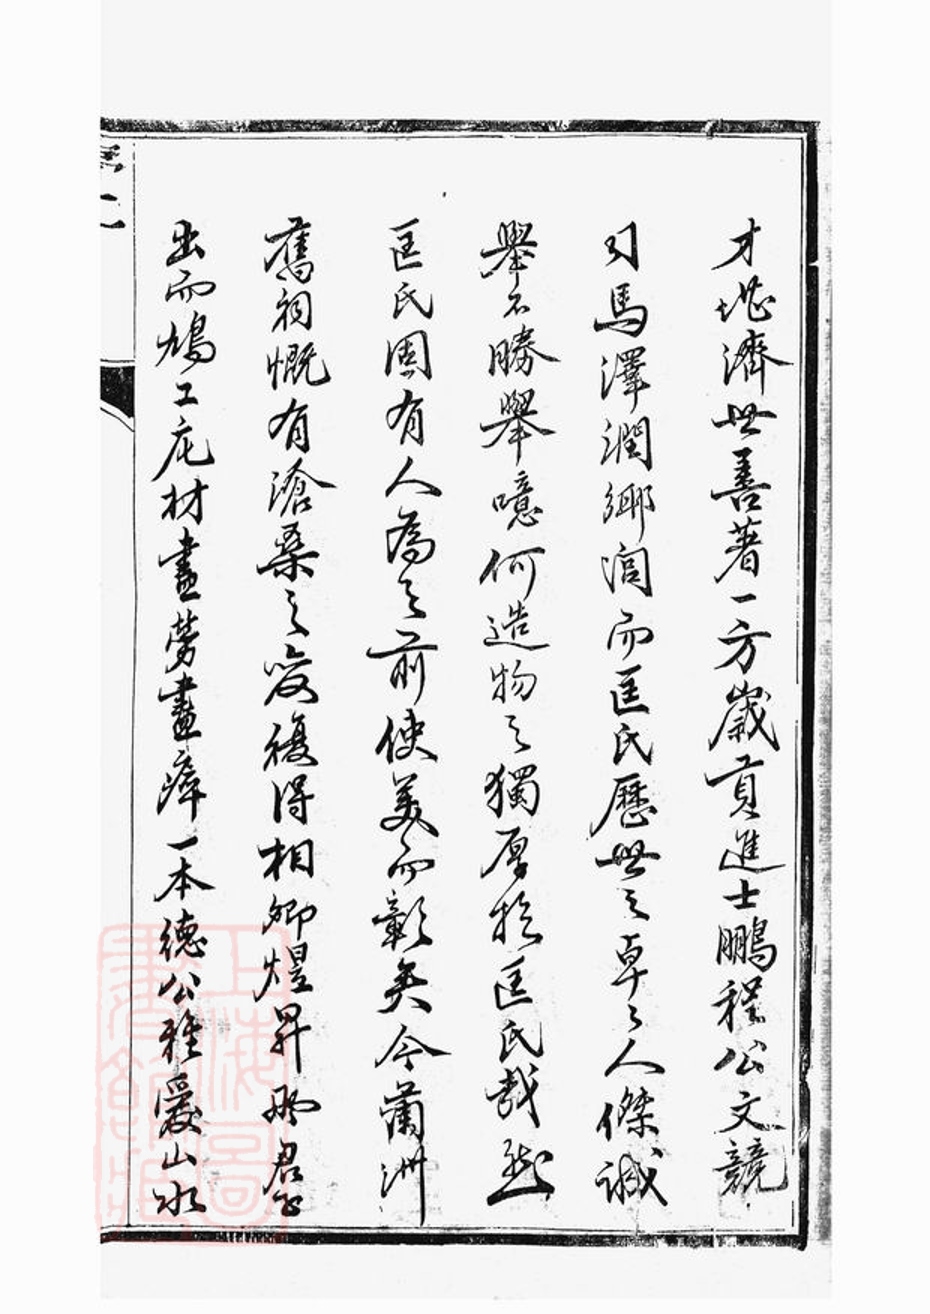 才堪濟世善著一方歲貢進士鵬程公文競
司馬澤潤鄉閭而匡氏歷世之卓之人傑誠
舉不勝舉噫何造物之獨厚於匡氏哉然
匡氏固有人為之前使美而彰矣今蘭洲
舊祠慨有滄桑之變復得相卿煌昇兩君
出而鳩工庇材盡勞盡瘁一本德公雅愛山水
上海圖書館藏